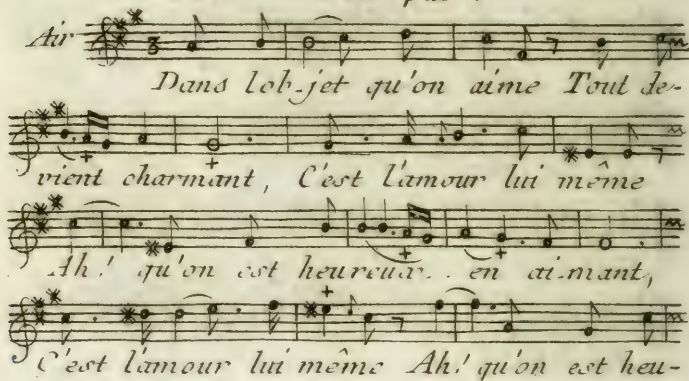 Air
Dans lob-jet qu'on aime Tout de-
vient charmant, C'est l'amour lui même
Ah! qu'on est heureux.. en ai-mant,
C'est l'amour lui même Ah! qu'on est heu-